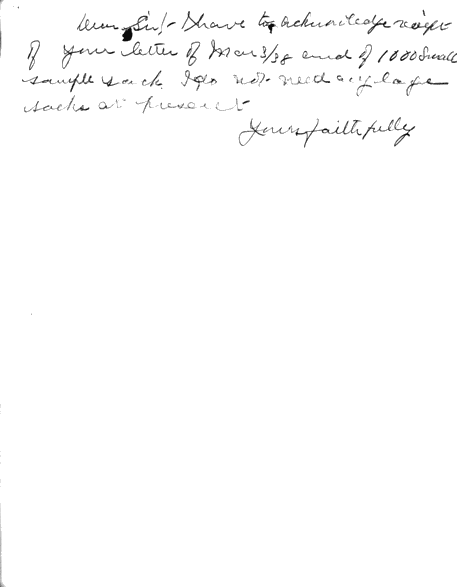 Dear Sir/- I have to acknowledge receipt
of your letter of Mar 3/38 and of 1000 Small
sample sack I do not need any large
sacks at present
Yours faithfully